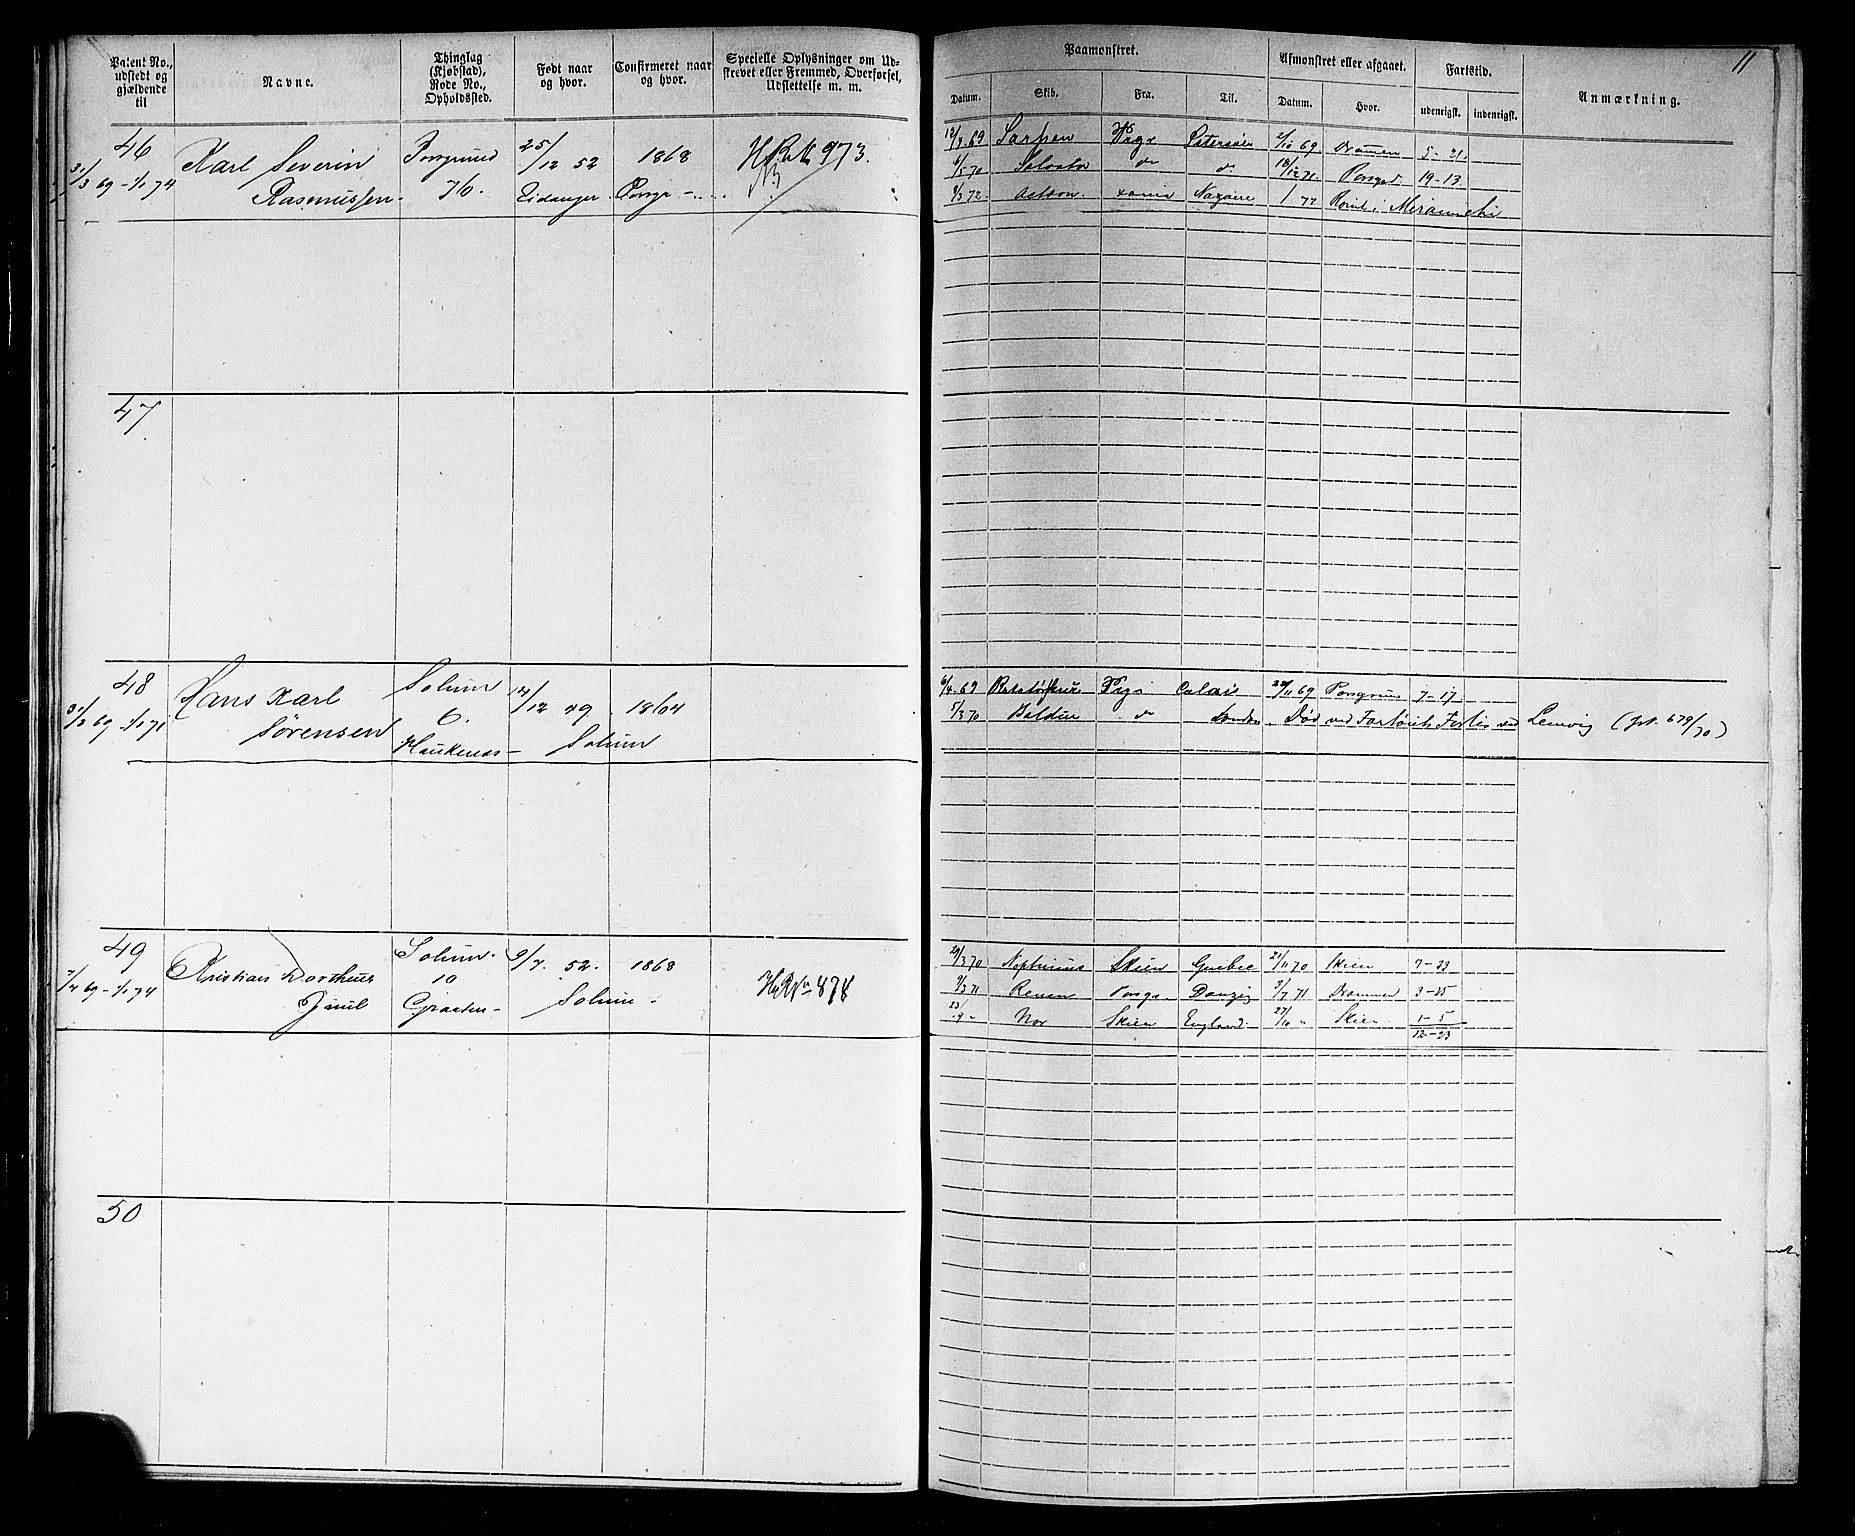 Patent No., udstedt og gjældende til
Navne.
Thinglag (Kjøbstad), Rode No., Opholdssted.
Født naar og hvor.
Confirmeret naar og hvor.
Specielle Oplysninger om Udskrevet eller Fremmed, Overførsel, Udslettelse m. m.
Paamønstret.
Datum. Skib. Fra. Til.
Afmønstret eller afgaaet.
Datum. Hvor.
Fartstid.
udenrigst. indenrigst.
Anmærkning.
11
46
31/3 69 - 1/1 74
Karl Severin
Rasmussen
Porsgrund
76.
25/12 52
Eidanger
1868
Porsgr
973.
12/3 69 Sarpen 2/10 69 Drammen 5-21.
6/5 70 Salvator do do 18/12 71 19-13
8/3 72 Nazaire 1 72
47
48
31/3 69 - 1/1 71
Hans Karl
Sørensen
Solum
6.
Haukenes
14/12 49
1864
Solum
6/4 69 Calais 22/11 69 Porsgrund 7-17
5/3 70 Baldur do London Død ved Lemvig
49
2/4 69 - 1/1 74
Kristian Dortheus
Juul
Solum
10
Graaten
9/7. 52.
1868
Solum
878
29/3 70 Neptunus Skien Quebec 21/11 70 Skien 7-23
9/3 71 Porsgr. Danzig 3/7 71 Drammen 3-25
23/9 " Nor Skien England. 27/10 " Skien 1-5
12-23
50